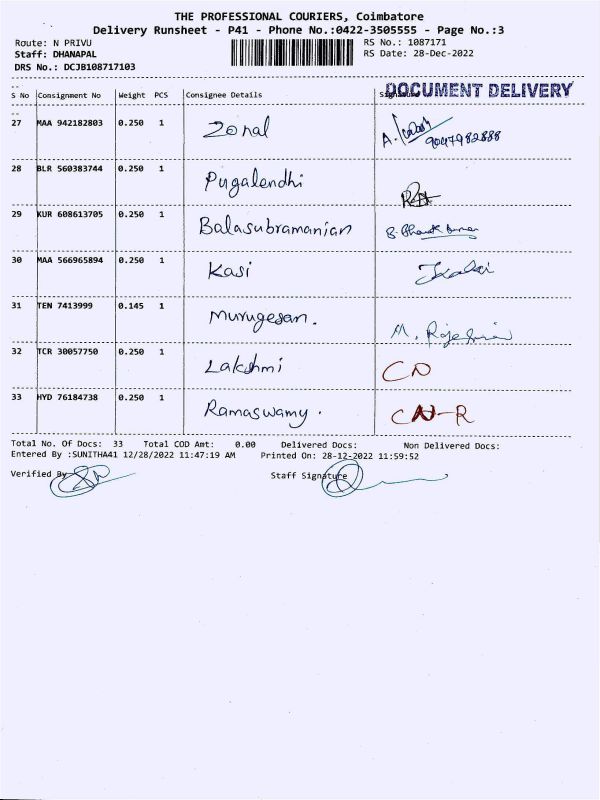 THE PROFESSIONAL COURIERS, Coimbatore
Delivery Runsheet - P41 - Phone No.:0422-3505555 - Page No.:3
Route: N PRIVU RS No.: 1087171
Staff: DHANAPAL RS Date: 28-Dec-2022
DRS No.: DCJB108717103
DOCUMENT DELIVERY
S No Consignment No Weight PCS Consignee Details Signature
27 MAA 942182803 0.250 1 Zonal A. 9047982888
28 BLR 560383744 0.250 1 Pugalendhi
29 KUR 608613705 0.250 1 Balasubramanian B.
30 MAA 566965894 0.250 1 Kasi
31 TEN 7413999 0.145 1 Murugesan. M.
32 TCR 30057750 0.250 1 Lakshmi CN
33 HYD 76184738 0.250 1 Ramaswamy. CN-R
Total No. Of Docs: 33 Total COD Amt: 0.00 Delivered Docs: Non Delivered Docs:
Entered By :SUNITHA41 12/28/2022 11:47:19 AM Printed On: 28-12-2022 11:59:52
Verified By Staff Signature